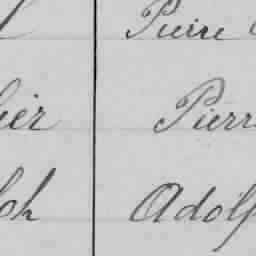 Pierre
ier Pierr
loh Adolf